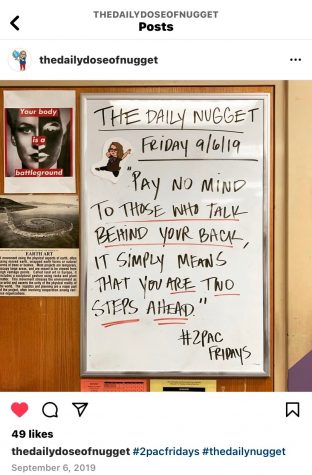 THEDAILYDOSEOFNUGGET
Posts
thedailydoseofnugget
Your body
is a
battleground
EARTH ART
THE DAILY NUGGET
FRIDAY 9/6/19
"PAY NO MIND
TO THOSE WHO TALK
BEHIND YOUR BACK,
IT SIMPLY MEANS
THAT YOU ARE TWO
STEPS AHEAD"
#2PAC
FRIDAYS
49 likes
thedailydoseofnugget #2pacfridays #thedailynugget
September 6, 2019